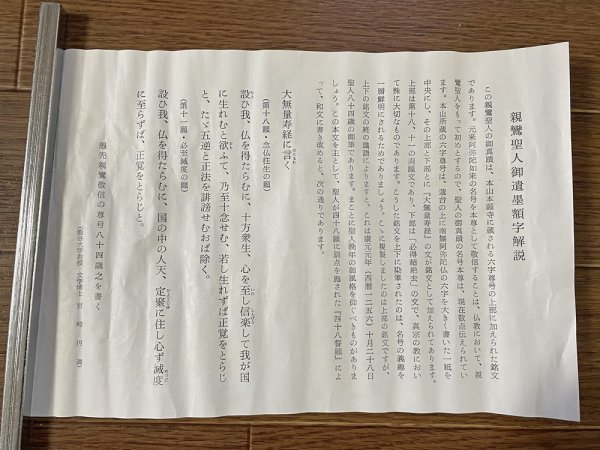 親鸞聖人御遺墨額字解説
この親鸞聖人の御真蹟は、本山本願寺に蔵される六字尊号の上部に加えられた銘文
であります。元来阿弥陀如来の名号を本尊として敬信することは、仏教において、親
鸞聖人をもって初めとするので、聖人の御真蹟の名号本尊は、現在数点伝られてい
ます。本山所蔵の六字尊号は、蓮台の上に南無阿弥陀仏の六字を大きく書いた一紙を
中央にし、その上部と下部とに『大無量寿経』の文が銘文として加えられてあります。
上部は第十八、十一の両願文であり、下部は「必得超絶去」の文で、真宗の教におい
て殊に大切なものであります。こうした銘文を上下に染筆されたのは、名号の義趣を
一層鮮明にされるためでありましょう。こゝに複製しましたのは上部の銘文ですが、
上下の銘文の終の識語によりますと、これは康元元年（西暦一二五六）十月二十八日
聖人八十四歳の御筆であります。まことに聖人晩年の御風格を仰ぐべきものがありま
しょう。この本文を主として、聖人が四十八願に訓点を施された『四十八誓願』によ
って、和文に書き改めると、次の通りであります。
大無量寿経に言く
（第十八願・念仏往生の願）
設ひ我、仏を得たらむに、十方衆生、心を至し信楽して我が国
に生れむと欲ふて、乃至十念せむ、若し生れずば正覚をとらじ
と、たゞ五逆と正法を誹謗せむおば除く。
（第十一願・必至滅度の願）
設ひ我、仏を得たらむに、国の中の人天、定聚に住し必ず滅度
に至らずば、正覚をとらじと。
愚禿親鸞敬信の尊号八十四歳之を書く
（龍谷大学教授・文学博士 宮崎円遵）